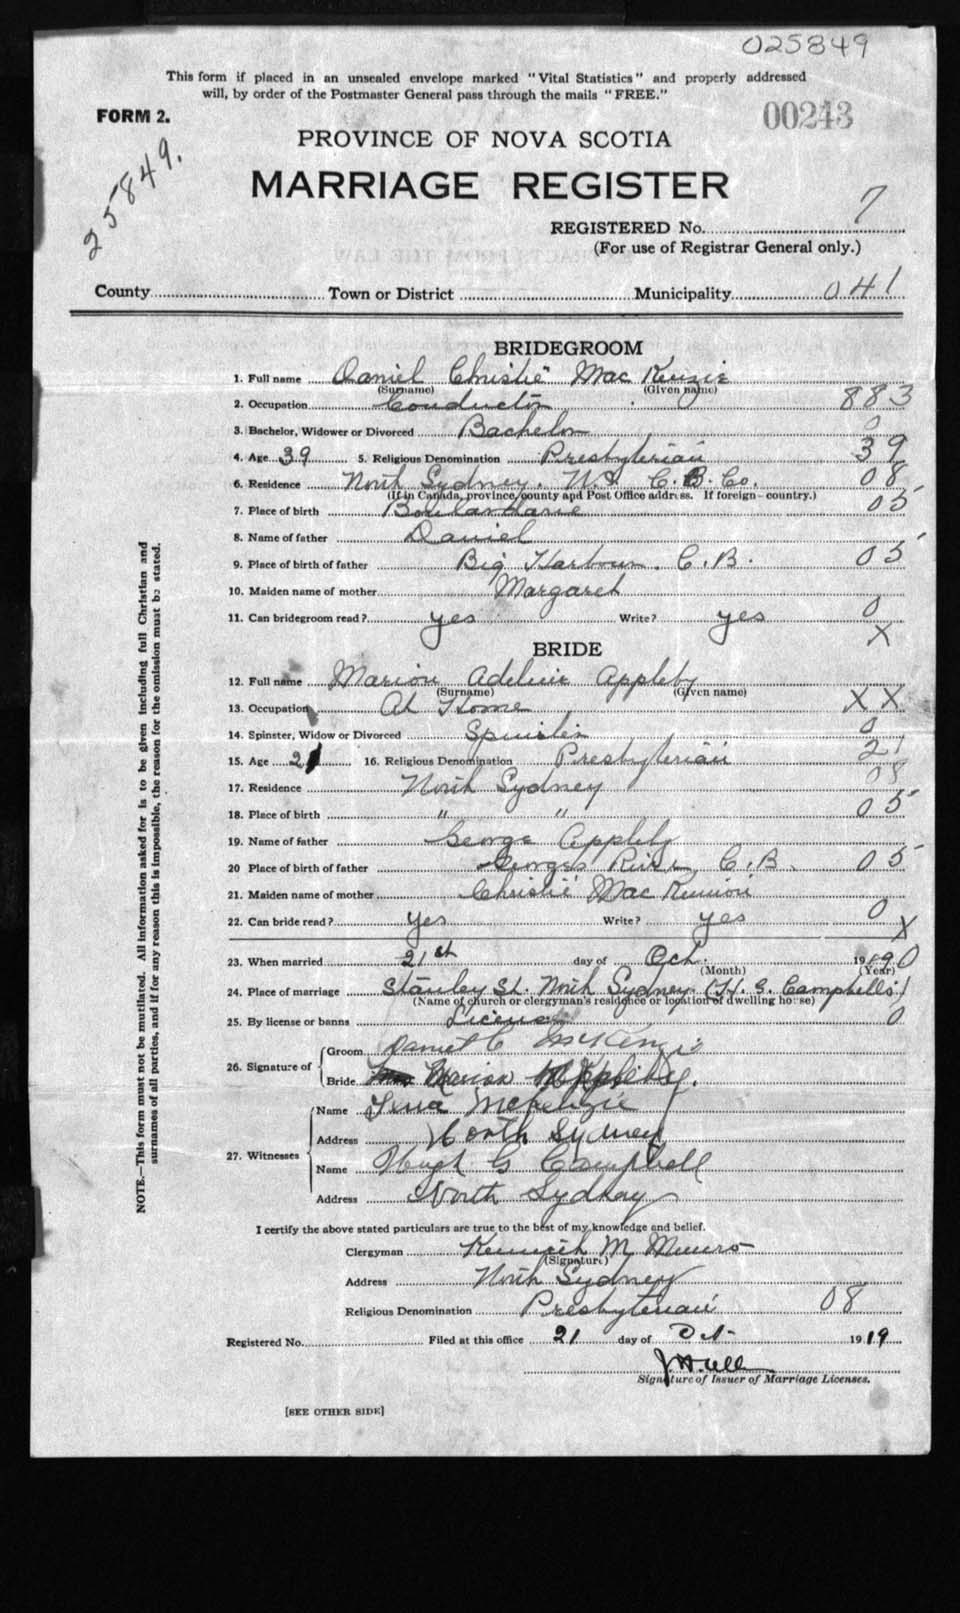 025849
This form if placed in an unsealed envelope marked "Vital Statistics" and properly addressed
will, by order of the Postmaster General pass through the mails "FREE."
FORM 2.
00243
PROVINCE OF NOVA SCOTIA
25849.
MARRIAGE REGISTER
REGISTERED No. 7
(For use of Registrar General only.)
County Town or District Municipality 041
NOTE.—This form must not be mutilated. All information asked for is to be given including full Christian and
surnames of all parties, and if for any reason this is impossible, the reason for the omission must be stated.
BRIDEGROOM
1. Full name Daniel Christie MacKenzie
(Surname) (Given name)
2. Occupation Conductor 883
3. Bachelor, Widower or Divorced Bachelor 0
4. Age 39 5. Religious Denomination Presbyterian 39
6. Residence North Sydney. N.S. C.B. Co. 08
(If in Canada, province/county and Post Office address. If foreign—country.)
7. Place of birth Boulardarie 05
8. Name of father Daniel
9. Place of birth of father Big Harbour. C.B. 05
10. Maiden name of mother Margaret
11. Can bridegroom read? yes Write? yes 0
X
BRIDE
12. Full name Marion Adeline Appleby
(Surname) (Given name)
13. Occupation At Home XX
14. Spinster, Widow or Divorced Spinster 0
15. Age 21 16. Religious Denomination Presbyterian 21
17. Residence North Sydney 08
18. Place of birth " " 05
19. Name of father George Appleby
20 Place of birth of father Georges River C.B. 05
21. Maiden name of mother Christie MacKinnon
22. Can bride read? yes Write? yes 0
X
23. When married 21st day of Oct. 19190
(Month) (Year)
24. Place of marriage Stanley St. North Sydney (H. G. Campbell's)
(Name of church or clergyman's residence or location of dwelling house)
25. By license or banns License 0
26. Signature of
Groom Daniel C McKenzie
Bride Marion Appleby.
27. Witnesses
Name McKenzie
Address North Sydney
Name Hugh G Campbell
Address North Sydney
I certify the above stated particulars are true to the best of my knowledge and belief.
Clergyman Kenneth M Munro
(Signature)
Address North Sydney
Religious Denomination Presbyterian 08
Registered No. Filed at this office 21 day of Oct 1919
Signature of Issuer of Marriage Licenses.
[SEE OTHER SIDE]